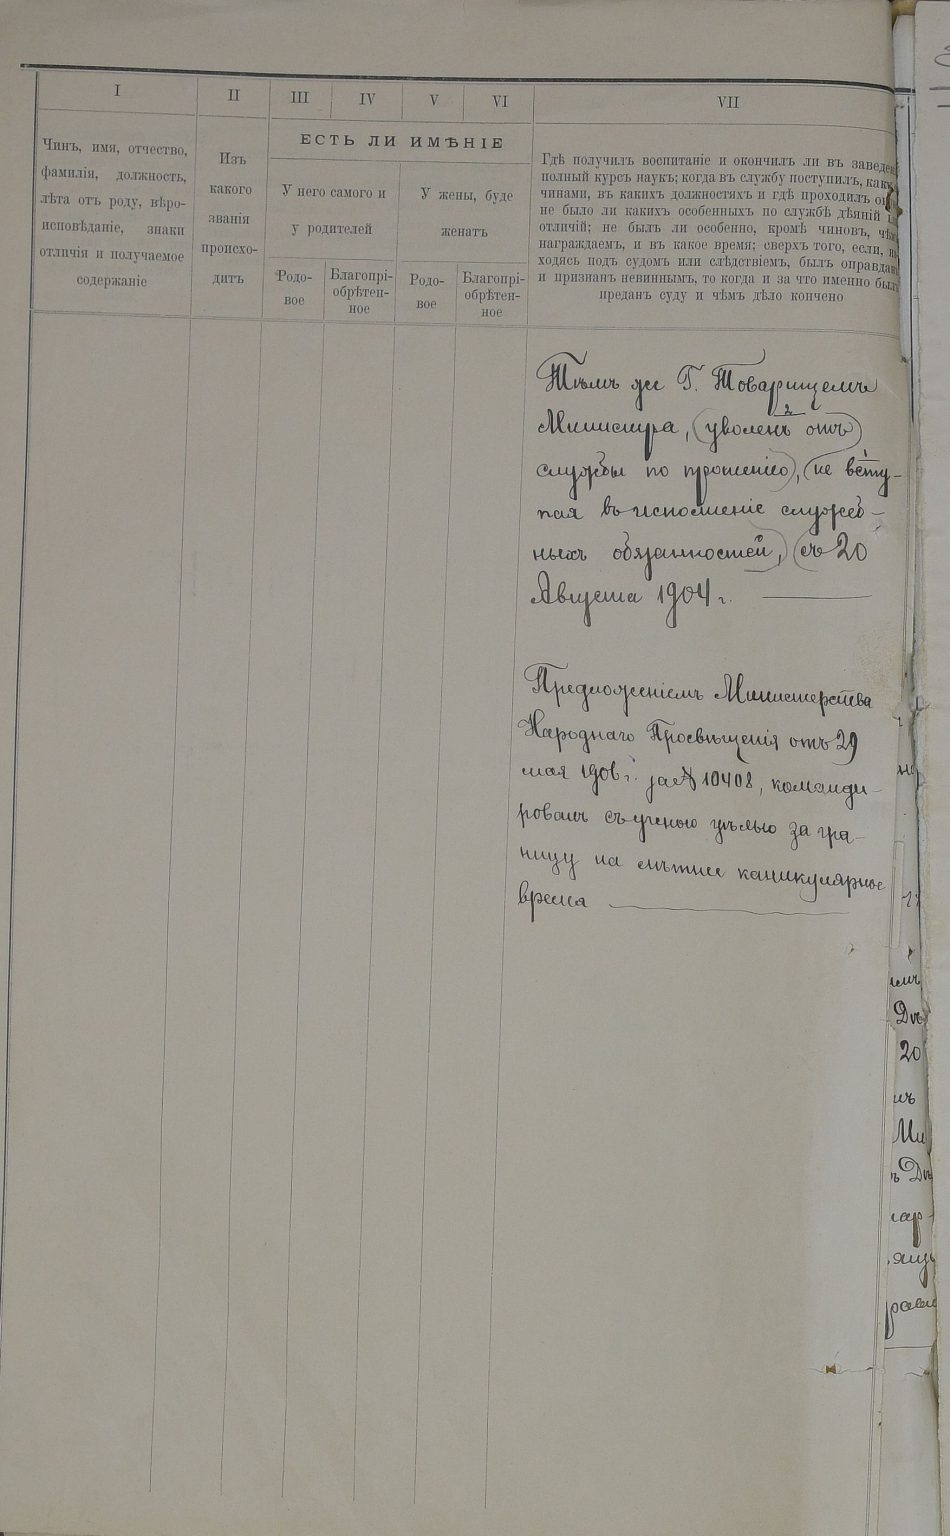 I II III IV V VI VII
Чинъ, имя, отчество,
фамилія, должность,
лѣта отъ роду, вѣро-
исповѣданіе, знаки
отличія и получаемое
содержаніе
Изъ
какого
званія
происхо-
дитъ
ЕСТЬ ЛИ ИМѢНІЕ
У него самого и
у родителей
У жены, буде
женатъ
Родо-
вое
Благопрі-
обрѣтен-
ное
Родо-
вое
Благопрі-
обрѣтен-
ное
Гдѣ получилъ воспитаніе и окончилъ ли въ заведе
полный курсъ наукъ; когда въ службу поступилъ, как
чинами, въ какихъ должностяхъ и гдѣ проходилъ о
не было ли какихъ особенныхъ по службѣ дѣяній
отличій; не былъ ли особенно, кромѣ чиновъ, чѣ
награждаемъ, и въ какое время; сверхъ того, если, н
ходясь подъ судомъ или слѣдствіемъ, былъ оправда
и признанъ невиннымъ, то когда и за что именно был
преданъ суду и чѣмъ дѣло кончено
Тѣмъ же Г. Товарищемъ
2
Министра, (уволенъ отъ
службы по прошенію), (не всту-
пая въ исполненіе служеб-
ныхъ обязанностей,) (съ 20
Августа 1904 г.
Предложеніемъ Министерства
Народнаго Просвѣщенія отъ 29
мая 1906 г. за № 10408, команди-
рованъ съ ученою цѣлью за гра-
ницу на лѣтнее каникулярное
время
20